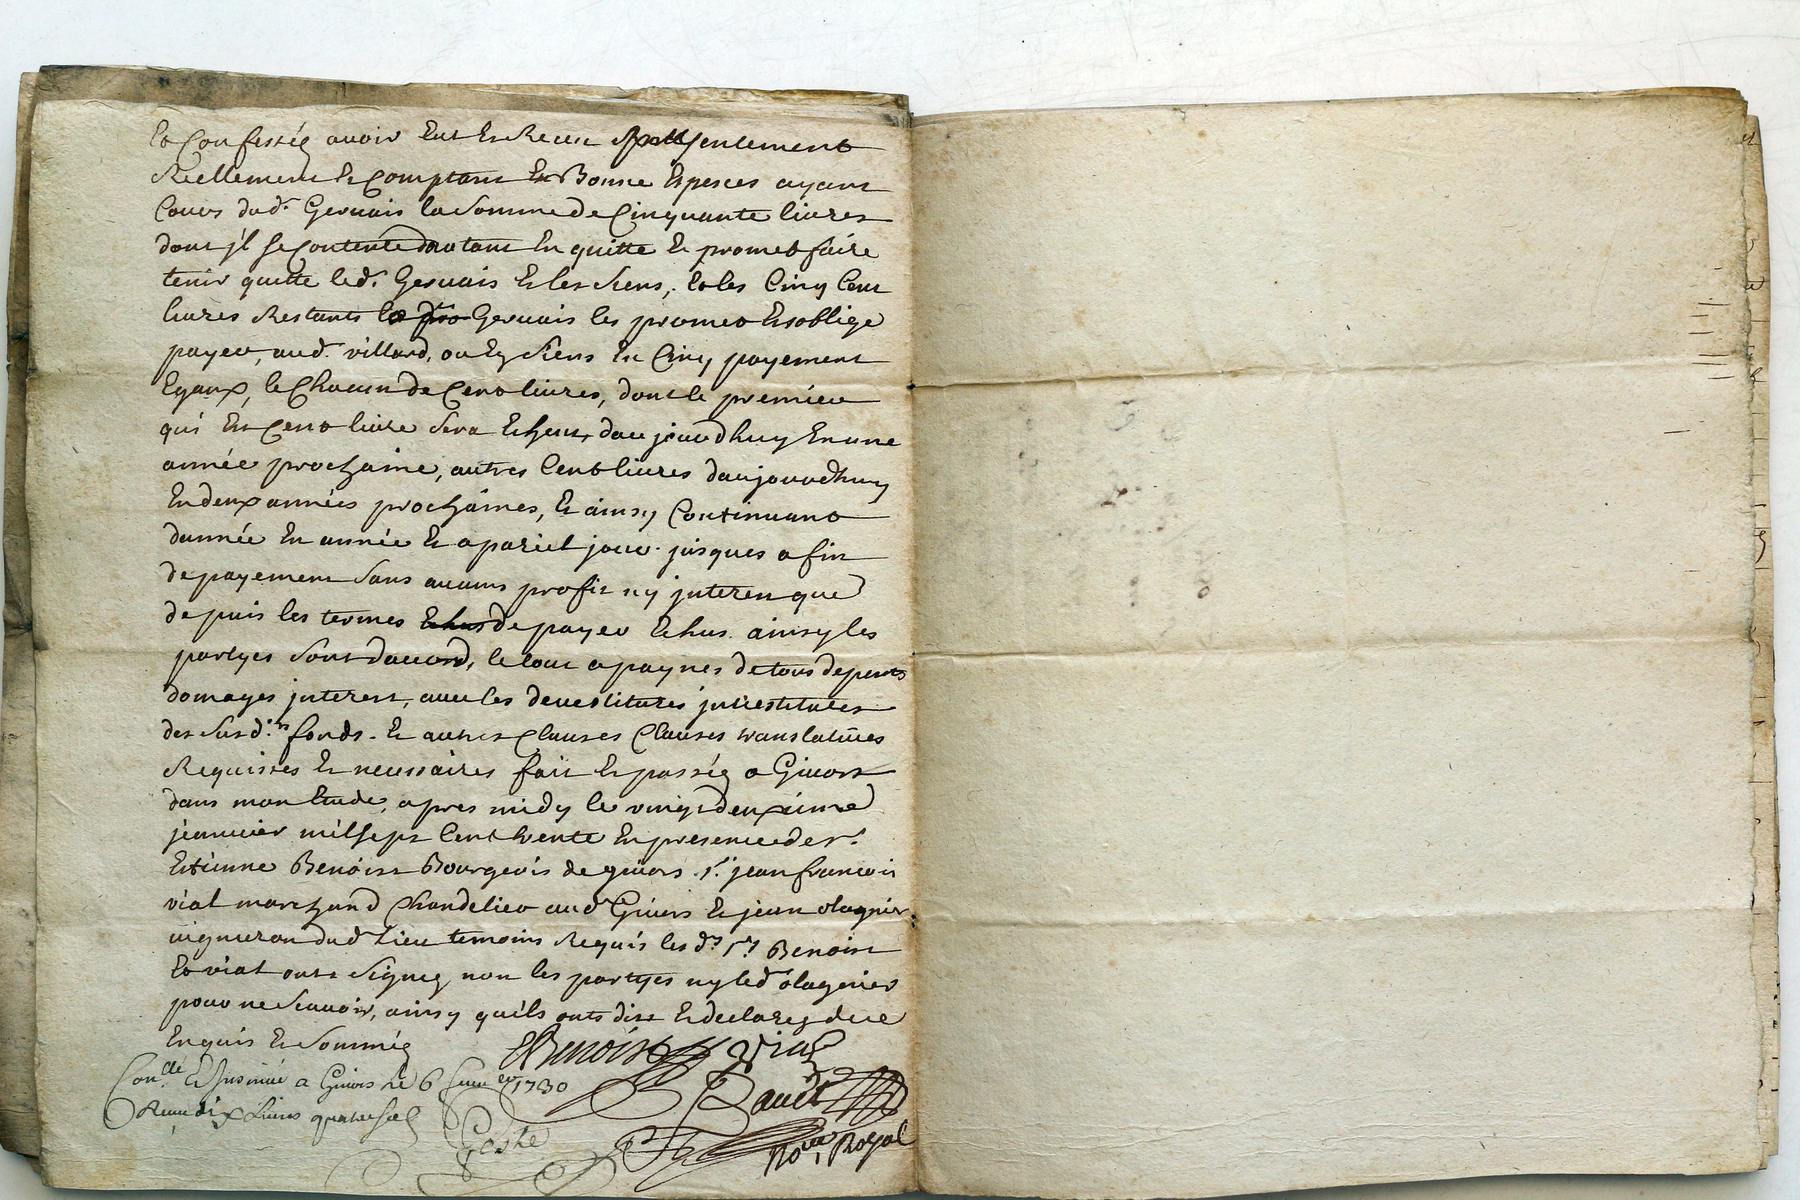 Et Confesséz avoir Eut Et Receu presentement
Reellement Et Comptant En Bonne Especes ayant
Cours dud.t Gervais la Somme de Cinquante livres
dont j'l se Contente dautant En quitte Et promet faire
tenir quitte led.t Gervais Et les Siens, Et les Cinq Cent
livres Restants le Gervais les promet Et oblige
payer, aud.t villard, ou Es Siens En Cinq payement
Egaux, le Chacun de Cent livres, dont le premier
qui Est Cent livre Sera Echeus, daujourdhuy En une
année prochaine, autres Cent livres daujourdhuy
En deux années prochaines, Et ainsy Continuant
dannée En année Et a pariel jour jusques a fin
de payement Sans aucuns profit ny jnterest que
depuis les termes Echus de payer Echus. ainsy les
partyes Sont daccord, le tout a paynes de tous depents
domages jnterest, avec les devestitures jnvestitures
des Susd.ts fonds. Et autres Clauses Clauses translatives
Requises Et necessaires fait Et passéz a Givort
dans mon Etude, apres midy le vingt deuxième
jeanvier mil sept Cent trente En presence de s.r
Estienne Benoist Bourgeois de givors s.r jean francois
vial marchand Chandelier aud.t Givors Et jean olagnier
vigneron dud.t Lieu temoins Requis les d.ts s.rs Benoist
Et vial onts Signez non les partyes ny led.t olagnier
pour ne Scavoir, ainsy quils onts dist Et declarez de ce
Enquis Et Sommez
EBenoist Vial
Con.lé Et Insinué a Givors le 6 1730
Receu dix Livres quatre sols
Not.re Royal